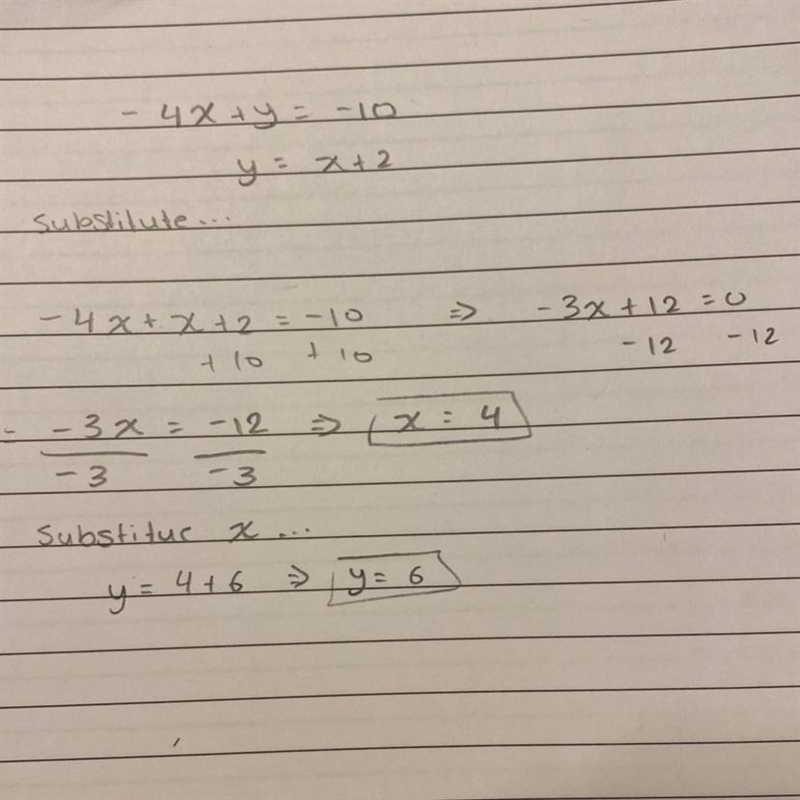 - 4x + y = -10
y = x + 2
Substitute...
-4x + x + 2 = -10 => -3x + 12 = 0
+10 +10 -12 -12
- -3x = -12 => x = 4
-3 -3
Substitue x ...
y = 4 + 6 => y = 6